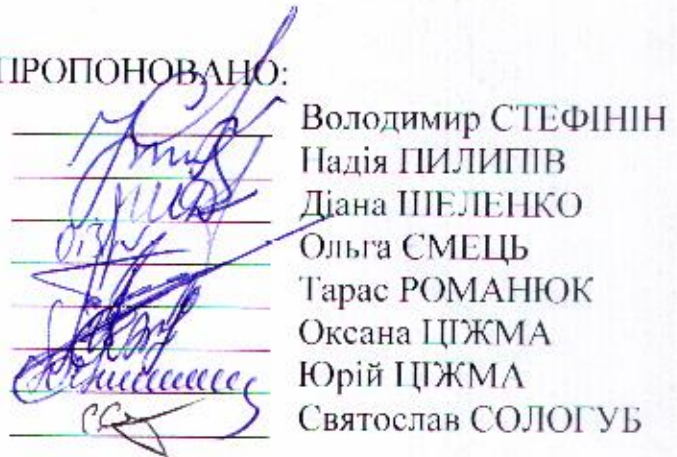 ПРОПОНОВАНО:
Володимир СТЕФІНІН
Надія ПИЛИПІВ
Діана ШЕЛЕНКО
Ольга ЄМЕЦЬ
Тарас РОМАНЮК
Оксана ЦІЖМА
Юрій ЦІЖМА
Святослав СОЛОГУБ